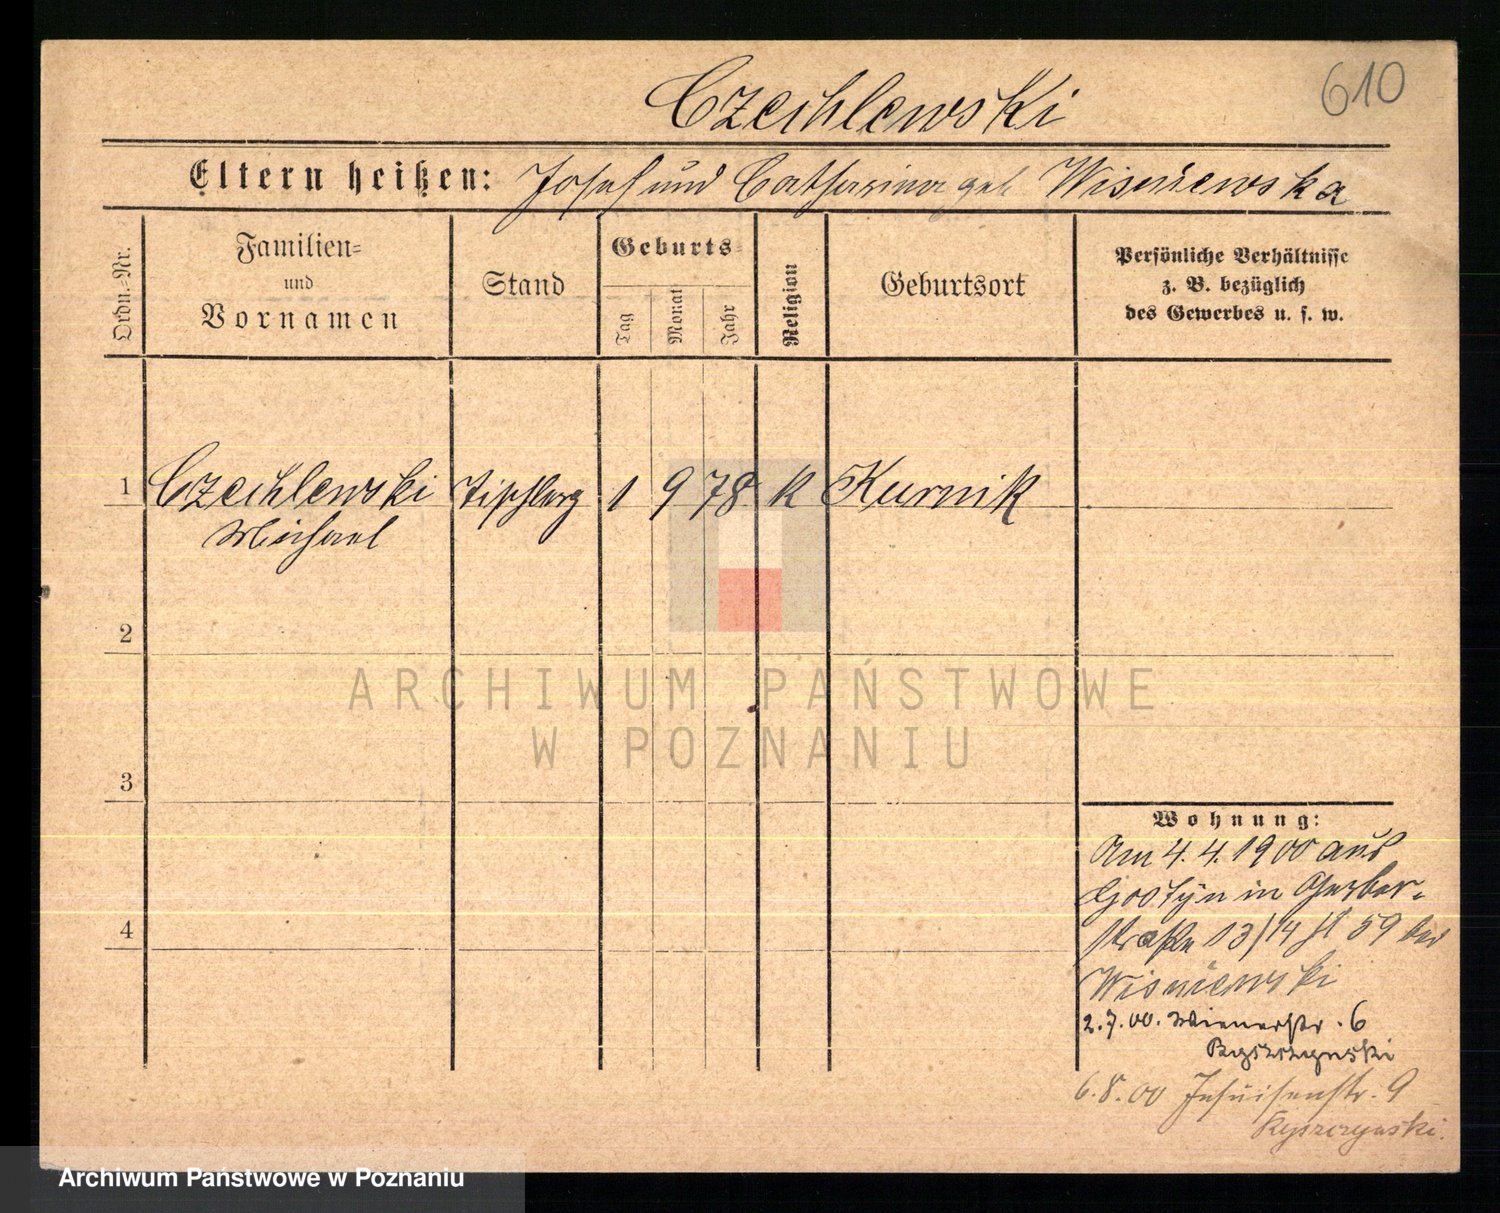 610
Czechlewski
Eltern heißen: Josef und Catharina geb. Wisniewska
Ordn.-Nr.
Familien-
und
Vornamen
Stand
Geburts-
Tag
Monat
Jahr
Religion
Geburtsort
Persönliche Verhältnisse
z. B. bezüglich
des Gewerbes u. s. w.
1 Czechlewski Tischlerg 1 9 78 K Kurnik
Michael
2
ARCHIWUM PAŃSTWOWE
W POZNANIU
3
Wohnung:
Am 4.4.1900 aus
Gostyn in Gerber-
straße 13/14 St 59 bei
4
Wisniewski
2.7.00. Wienerstr. 6
Ryszczynski
6.8.00 Jesuitenstr. 9
Ryszczynski.
Archiwum Państwowe w Poznaniu